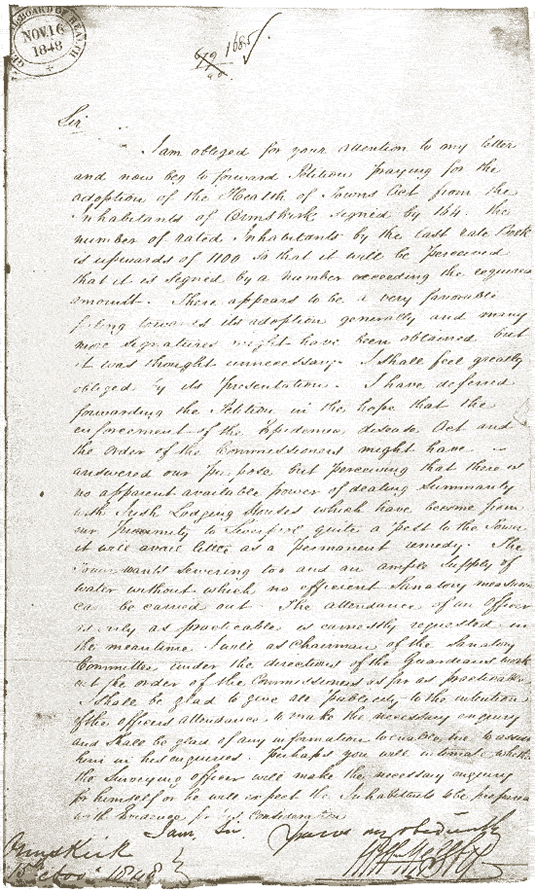 GENERAL BOARD OF HEALTH
NOV. 16
1848
1685
Sir
I am obliged for your attention to my letter
and now beg to forward Petition praying for the
adoption of the Health of Towns Act from the
Inhabitants of Ormskirk signed by 164. The
number of rated Inhabitants by the last rate Book
is upwards of 1100 so that it will be perceived
that it is signed by a number exceeding the required
amount. There appears to be a very favorable
feeling towards its adoption generally and many
more signatures might have been obtained but
it was thought unnecessary. I shall feel greatly
obliged by its presentation. I have deferred
forwarding the Petition in the hope that the
enforcement of the Epidemic disease Act and
the order of the Commissioners might have
answered our purpose but perceiving that there is
no apparent available power of dealing summarily
with Irish Lodging Houses which have become from
our proximity to Liverpool quite a pest to the Town
it will avail little as a permanent remedy. The
Town wants sewering too and an ample supply of
water without which no efficient Sanatory measure
can be carried out. The attendance of an Officer
as early as practicable is earnestly requested in
the meantime I will as Chairman of the Sanatory
Committee under the direction of the Guardians work
out the order of the Commissioners as far as practicable
I shall be glad to give all publicity to the intention
of the officers attendance to make the necessary enquiry
and shall be glad of any information to enable me to assist
him in his enquiries. Perhaps you will intimate whether
the surveying officer will make the necessary enquiry
for himself or he will expect the Inhabitants to be prepared
with Evidence for his consideration
I am, Sir, Yours my obediently
Ormskirk
15 Novr 1848